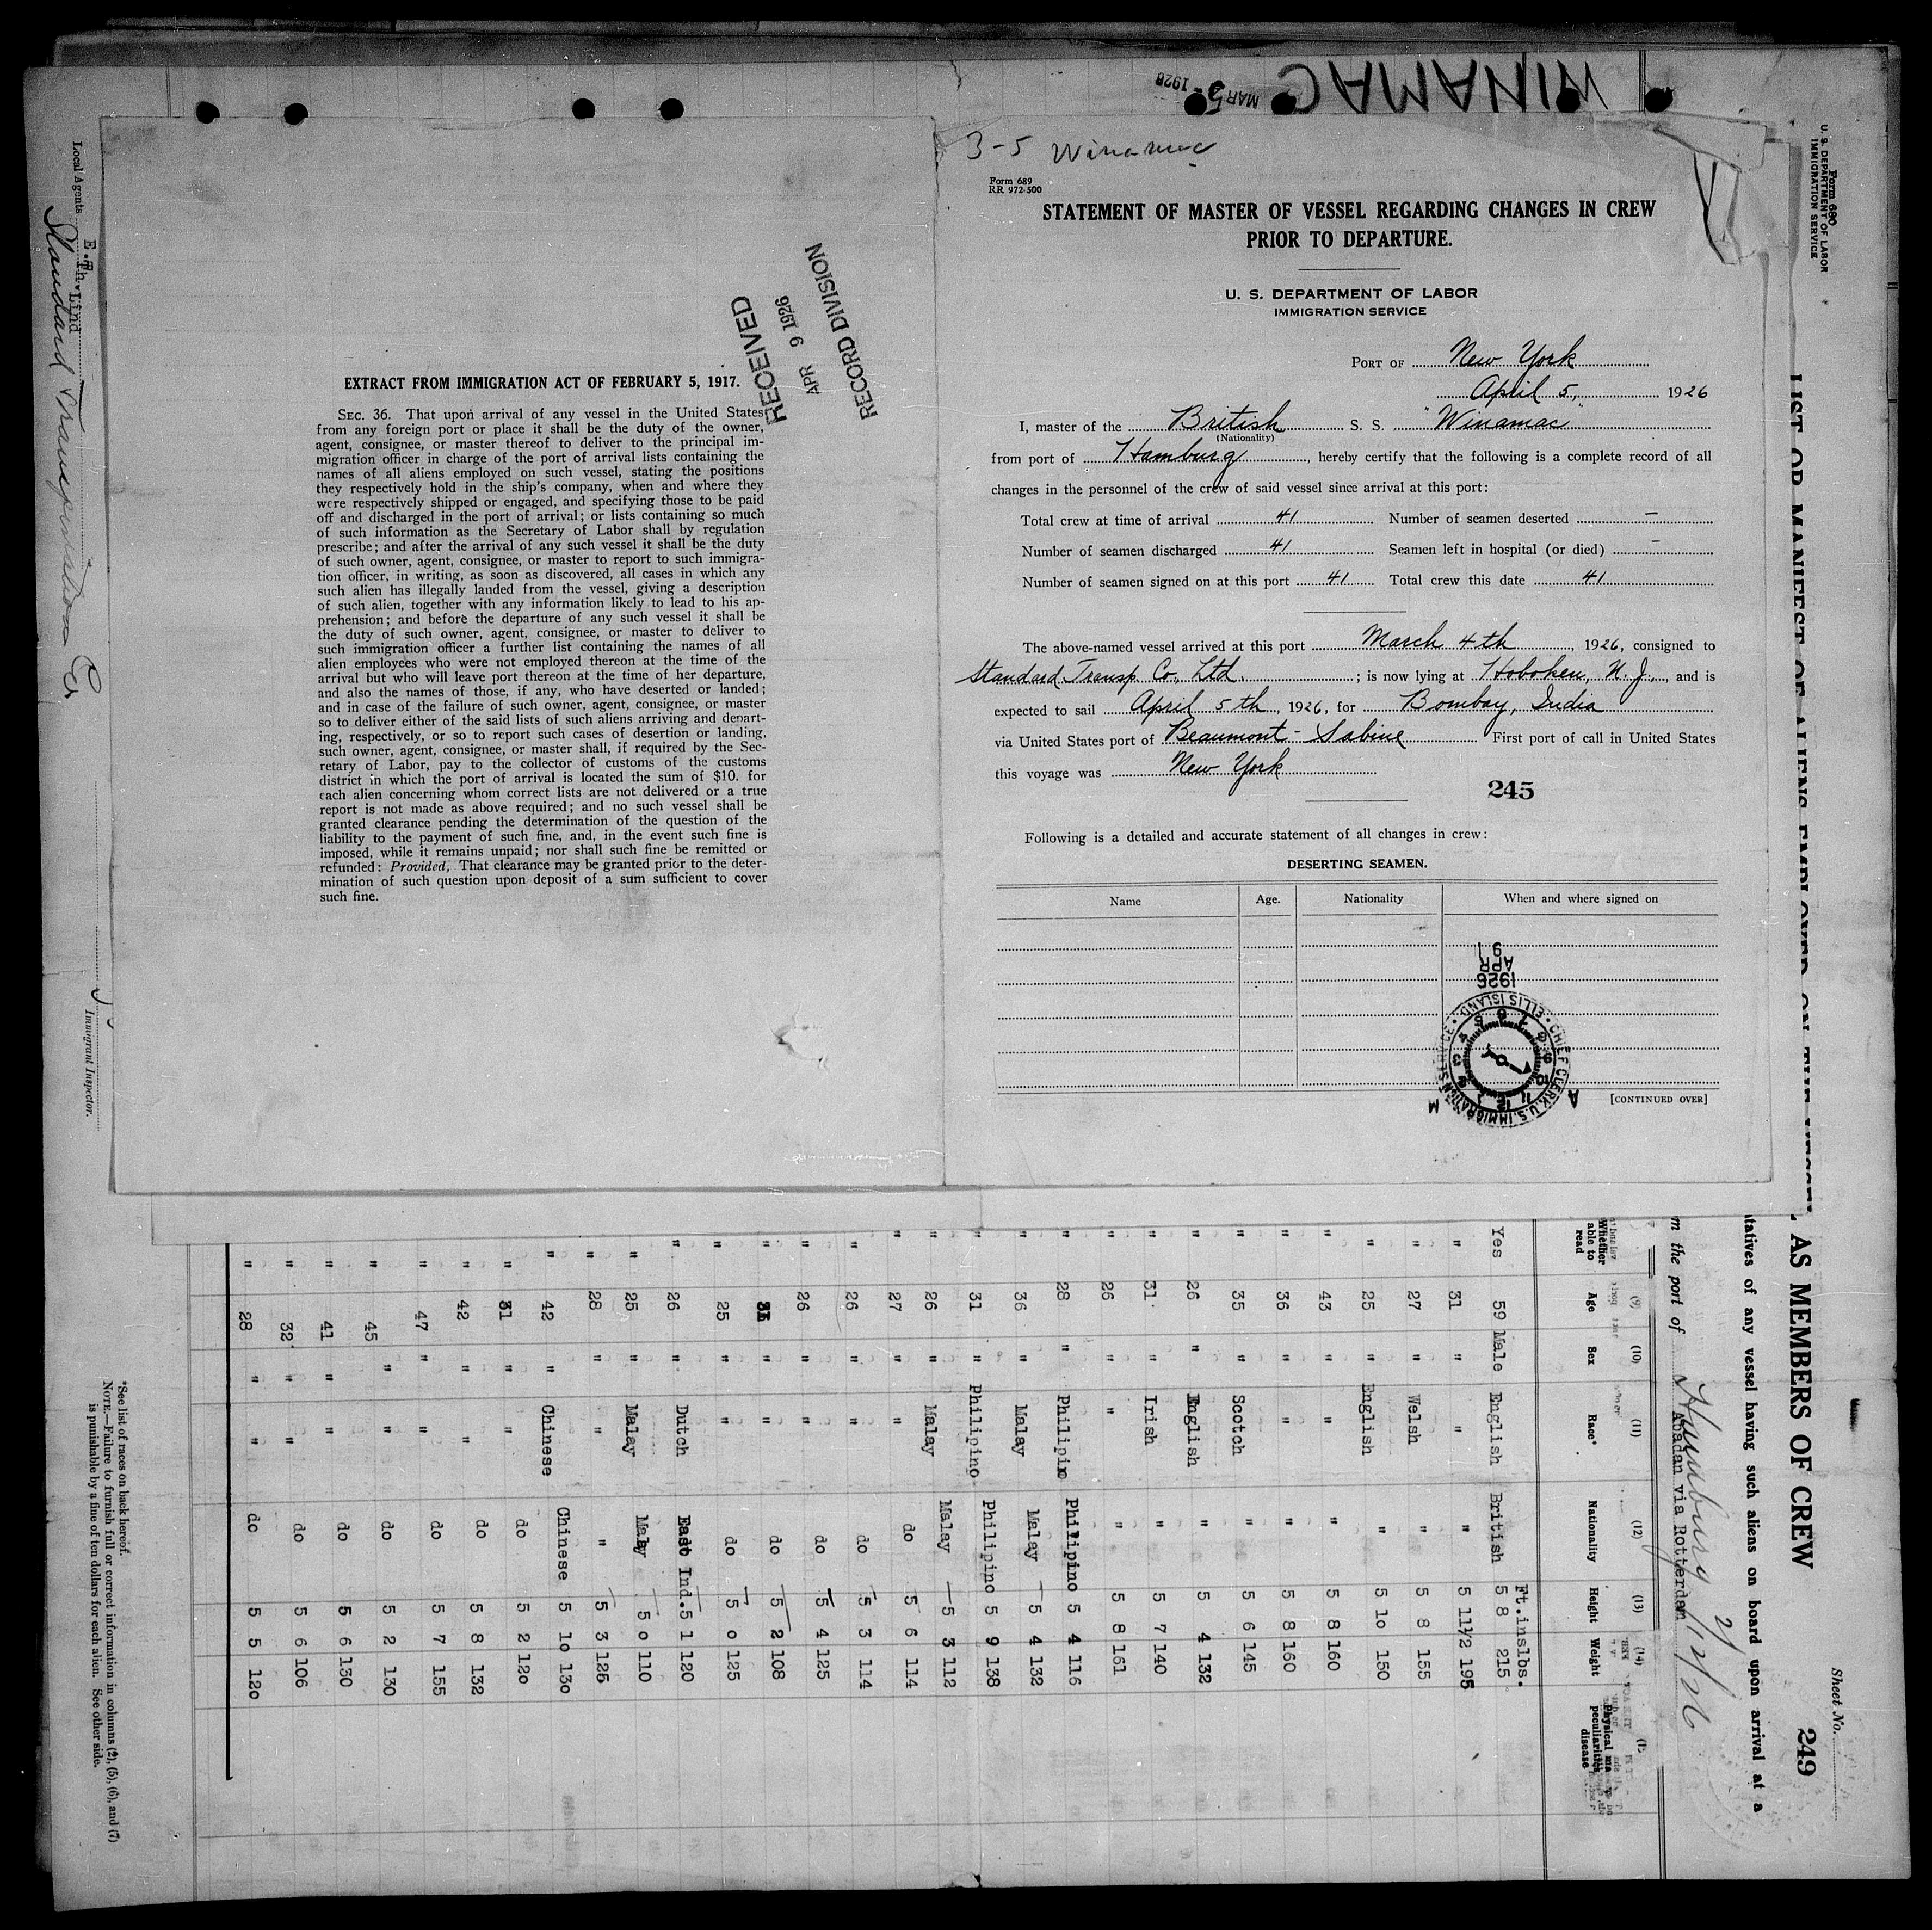 WINAMAC
MAR 5- 1926
3-5 Winamac
Form 689
RR 972-500
STATEMENT OF MASTER OF VESSEL REGARDING CHANGES IN CREW
PRIOR TO DEPARTURE.
U. S. DEPARTMENT OF LABOR
IMMIGRATION SERVICE
PORT OF New York
April 5, 1926
I, master of the British S. S. "Winamac"
(Nationality)
from port of Hamburg, hereby certify that the following is a complete record of all
changes in the personnel of the crew of said vessel since arrival at this port:
Total crew at time of arrival 41 Number of seamen deserted —
Number of seamen discharged 41 Seamen left in hospital (or died) —
Number of seamen signed on at this port 41 Total crew this date 41
The above-named vessel arrived at this port March 4th, 1926, consigned to
Standard Transp. Co. Ltd. ; is now lying at Hoboken, N. J., and is
expected to sail April 5th, 1926, for Bombay, India
via United States port of Beaumont - Sabine First port of call in United States
this voyage was New York
245
Following is a detailed and accurate statement of all changes in crew:
DESERTING SEAMEN.
Name Age. Nationality When and where signed on
1926
APR
9
CHIEF CLERK, U.S. IMMIGRATION SERVICE • ELLIS ISLAND
A M
[CONTINUED OVER]
RECEIVED
APR 9 1926
RECORD DIVISION
EXTRACT FROM IMMIGRATION ACT OF FEBRUARY 5, 1917.
SEC. 36. That upon arrival of any vessel in the United States
from any foreign port or place it shall be the duty of the owner,
agent, consignee, or master thereof to deliver to the principal im-
migration officer in charge of the port of arrival lists containing the
names of all aliens employed on such vessel, stating the positions
they respectively hold in the ship's company, when and where they
were respectively shipped or engaged, and specifying those to be paid
off and discharged in the port of arrival; or lists containing so much
of such information as the Secretary of Labor shall by regulation
prescribe; and after the arrival of any such vessel it shall be the duty
of such owner, agent, consignee, or master to report to such immigra-
tion officer, in writing, as soon as discovered, all cases in which any
such alien has illegally landed from the vessel, giving a description
of such alien, together with any information likely to lead to his ap-
prehension; and before the departure of any such vessel it shall be
the duty of such owner, agent, consignee, or master to deliver to
such immigration officer a further list containing the names of all
alien employees who were not employed thereon at the time of the
arrival but who will leave port thereon at the time of her departure,
and also the names of those, if any, who have deserted or landed;
and in case of the failure of such owner, agent, consignee, or master
so to deliver either of the said lists of such aliens arriving and depart-
ing, respectively, or so to report such cases of desertion or landing,
such owner, agent, consignee, or master shall, if required by the Sec-
retary of Labor, pay to the collector of customs of the customs
district in which the port of arrival is located the sum of $10. for
each alien concerning whom correct lists are not delivered or a true
report is not made as above required; and no such vessel shall be
granted clearance pending the determination of the question of the
liability to the payment of such fine, and, in the event such fine is
imposed, while it remains unpaid; nor shall such fine be remitted or
refunded: Provided, That clearance may be granted prior to the deter-
mination of such question upon deposit of a sum sufficient to cover
such fine.
Form 680
U. S. DEPARTMENT OF LABOR
IMMIGRATION SERVICE
Sheet No.
249
LIST OR MANIFEST OF ALIENS EMPLOYED ON THE
AS MEMBERS OF CREW
tatives of any vessel having such aliens on board upon arrival at a
m the port of Hamburg
Abadan via Rotterdam
(9) (10) (11) (12) (13) (14)
Whether able to read Age Sex Race* Nationality Height Weight Physical peculiarities disease
Ft.inslbs.
Yes 59 Male English British 5 8 215
" 31 " " " 5 11½ 195
" 27 " Welsh " 5 8 155
" 25 " English " 5 10 150
" 43 " " " 5 8 160
" 36 " " " 5 8 160
" 35 " Scotch " 5 6 145
" 26 " English " 5 4 132
" 31 " Irish " 5 7 140
" 26 " " " 5 8 161
" 28 " Philipin Philipino 5 4 116
" 36 " Malay Malay 5 4 132
" 31 " Philipino Philipino 5 9 138
" 26 " Malay Malay 5 3 112
" 27 " " do 5 6 114
" 26 " " do 5 3 114
" 26 " " do 5 4 125
" " " do 5 2 108
" 25 " " do 5 0 125
" 26 " Dutch East Ind. 5 1 120
" 25 " Malay Malay 5 0 110
" 28 " " " 5 3 125
" 42 " Chinese Chinese 5 10 130
" 31 " " do 5 2 120
" 42 " " do 5 8 132
" 47 " " do 5 7 155
" 45 " " do 5 2 130
" 41 " " do 5 6 130
" 32 " " do 5 6 106
" 28 " " do 5 5 120
*See list of races on back hereof.
NOTE.—Failure to furnish full or correct information in columns (2), (5), (6), and (7)
is punishable by a fine of ten dollars for each alien. See other side.
Local Agents
E. Th. Lind
Standard Transportation Co.
Immigrant Inspector.